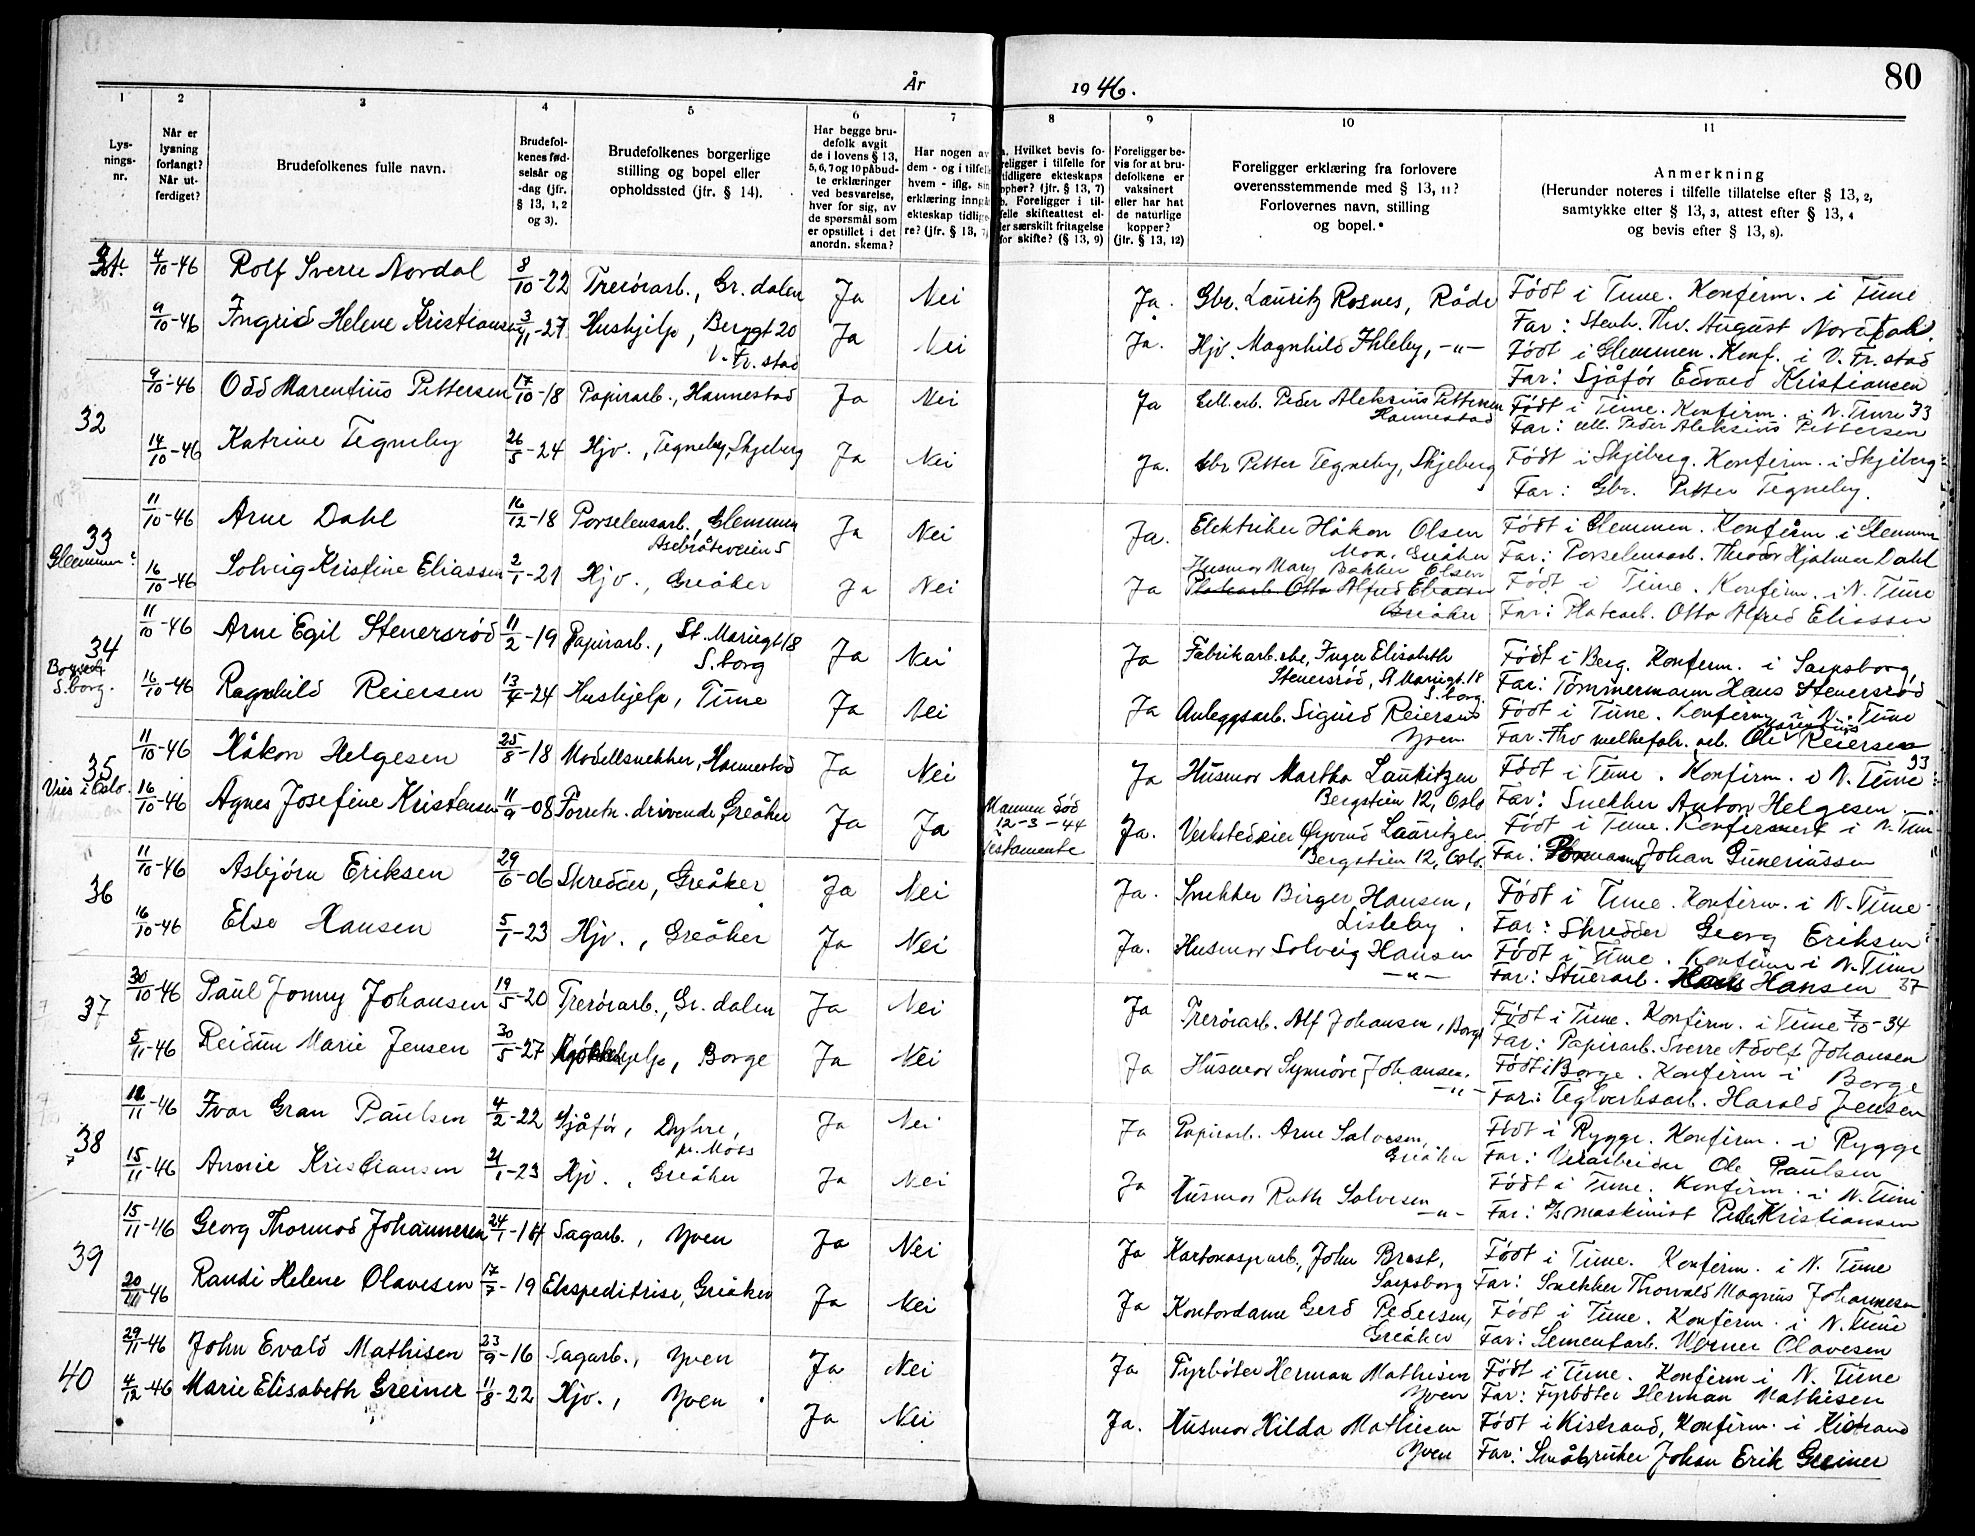 80
År 1946.
1 2 3 4 5 6 7 8 9 10 11
Lys-
nings-
nr.
Når er
lysning
forlangt?
Når ut-
ferdiget?
Brudefolkenes fulle navn.
Brudefol-
kenes fød-
selsår og
-dag (jfr.
§ 13, 1, 2
og 3).
Brudefolkenes borgerlige
stilling og bopel eller
opholdssted (jfr. § 14).
Har begge bru-
defolk avgit
de i lovens § 13,
5, 6, 7 og 10 påbud-
te erklæringer
ved besvarelse,
hver for sig, av
de spørsmål som
er opstillet i det
anordn. skema?
Har nogen av
dem - og i tilfelle
hvem - iflg. sin
erklæring inngå
ekteskap tidlige-
re? (jfr. § 13, 7)
a. Hvilket bevis fo-
religger i tilfelle for
tidligere ekteskaps
ophør? (jfr. § 13, 7)
b. Foreligger i til-
felle skifteattest el-
ler særskilt fritagelse
for skifte? (§ 13, 9)
Foreligger be-
vis for at bru-
defolkene er
vaksinert
eller har hat
de naturlige
kopper?
(jfr. § 13, 12)
Foreligger erklæring fra forlovere
overensstemmende med § 13, 11?
Forlovernes navn, stilling
og bopel.
Anmerkning
(Herunder noteres i tilfelle tillatelse efter § 13, 2,
samtykke efter § 13, 3, attest efter § 13, 4
og bevis efter § 13, 8).
4/10-46 Rolf Sverre Nordal 8/10-22 Trerørarb., Gr. dalen Ja Nei Ja. Gbr. Lauritz Rosnes, Råde Født i Tune. Konfirm. i Tune
Far: Stenh. Thv. August Nordal.
9/10-46 Ingrid Helene Kristiansen 3/11-27 Hushjelp, Berggt 20 Ja Nei Ja. Hjv. Magnhild Ihleby, -"- Født i Glemmen. Konf. i V. Fr. stad
V. Fr. stad
Far: Sjåfør Edvard Kristiansen
32 9/10-46 Odd Marentius Pettersen 17/10-18 Papirarb., Hannestad Ja Nei Ja Cell. arb. Peder Aleksius Pettersen Født i Tune. Konfirm. i N. Tune 33
Hannestad
Far: cell. Peder Aleksius Pettersen
14/10-46 Katrine Tegneby 26/5-24 Hjv., Tegneby, Skjeberg Ja Nei Ja. Gbr Petter Tegneby, Skjeberg Født i Skjeberg. Konfirm. i Skjeberg
Far: Gbr. Petter Tegneby.
33 11/10-46 Arne Dahl 16/12-18 Porselensarb., Glemmen Ja Nei Ja. Elektriker Håkon Olsen Født i Glemmen. Konfirm. i Glemmen
Moa, Greåker
Far: Porselensarb. Theodor Hjalmar Dahl
Glemmen 16/10-46 Solveig Kristine Eliassen 2/1-21 Hjv., Greåker Ja Nei Ja Husmor Mary Bakker Olsen Født i Tune. Konfirm. i N. Tune
Platearb. Otto Alfred Eliassen
Greåker
Far: Platearb. Otto Alfred Eliassen
34 11/10-46 Arne Egil Stenersrød 11/2-19 Papirarb., St. Mariegt 18 Ja Nei Ja Fabrikarb.ske, Inger Elisabeth Født i Berg. Konfirm. i Sarpsborg,
S. borg
Stenersrød, St. Mariegt. 18
S. borg
Far: Tømmermann Hans Stenersrød
S. borg. 16/10-46 Ragnhild Reiersen 13/4-24 Hushjelp, Tune Ja Nei Ja Anleggsarb. Sigurd Reiersen Født i Tune. Konfirm. i N. Tune
Yven.
Far: Thv melkefabr. arb. Ole Marentius Reiersen
35 11/10-46 Håkon Helgesen 25/8-18 Modellsnekker, Hannestad Ja Nei Ja Husmor Martha Lauritzen Født i Tune. Konfirm. i N. Tune 33
Bergstien 12, Oslo
Far: Snekker Anton Helgesen.
Vies i Oslo. 16/10-46 Agnes Josefine Kristensen 11/9-08 Forretn. drivende, Greåker Ja Ja Mannen død
12-3-44
Testamente Ja. Verkstedeier Øyvind Lauritzen Født i Tune. Konfirmert i N. Tune
Bergstien 12, Oslo.
Far: Johan Guneriussen
36 11/10-46 Asbjørn Eriksen 29/6-06 Skredder, Greåker Ja Nei Ja. Snekker Birger Hansen, Født i Tune. Konfirm. i N. Tune
Lisleby.
Far: Skredder Georg Eriksen
16/10-46 Else Hansen 5/1-23 Hjv., Greåker Ja Nei Ja. Husmor Solveig Hansen Født i Tune. Konfirm i N. Tune
-"-
Far: Stuerarb. Hansen 37
37 30/10-46 Paul Jonny Johansen 19/5-20 Trerørarb., Gr. dalen Ja Nei Ja Trerørarb. Alf Johansen, Borge Født i Tune. Konfirm. i Tune 7/10-34
Far: Papirarb. Sverre Adolf Johansen
5/11-46 Reidun Marie Jensen 30/5-27 Kjøkkenhjelp, Borge Ja Nei Ja Husmor Synnøve Johansen. Født i Borge. Konfirm i Borge
-"-
Far: Teglverksarb. Harald Jensen
38 12/11-46 Ivar Gran Paulsen 4/2-22 Sjåfør, Dyhre, Ja Nei Ja Papirarb. Arne Salvesen, Født i Rygge. Konfirm. i Rygge
pr. Moss
Greåker
Far: Veiarbeider Ole Paulsen
15/11-46 Annie Kristiansen 21/1-23 Hjv., Greåker Ja Nei Ja Husmor Ruth Salvesen Født i Tune. Konfirm. i N. Tune
-"-
Far: maskinist Peder Kristiansen
39 15/11-46 Georg Thormod Johannesen 24/1-14 Sagarb., Yven Ja Nei Ja Kartonasjearb., John Brest, Født i Tune. Konfirm. i N. Tune
Sarpsborg
Far: Snekker Thorvald Magnus Johannesen
20/11-46 Randi Helene Olavesen 17/7-19 Ekspeditrise, Greåker Ja Nei Ja Kontordame Gerd Pedersen, Født i Tune. Konfirm. i N. Tune
Greåker
Far: Sementarb. Werner Olavesen
40 29/11-46 John Evald Mathisen 23/9-16 Sagarb., Yven Ja Nei Ja Fyrbøter Herman Mathisen Født i Tune. Konfirm i N. Tune
Yven
Far: Fyrbøter Herman Mathisen
4/12-46 Marie Elisabeth Greiner 11/8-22 Hjv., Yven Ja Nei Ja. Husmor Hilda Mathisen Født i Kistrand, Konfirm. i Kistrand
Yven
Far: Småbruker Johan Erik Greiner